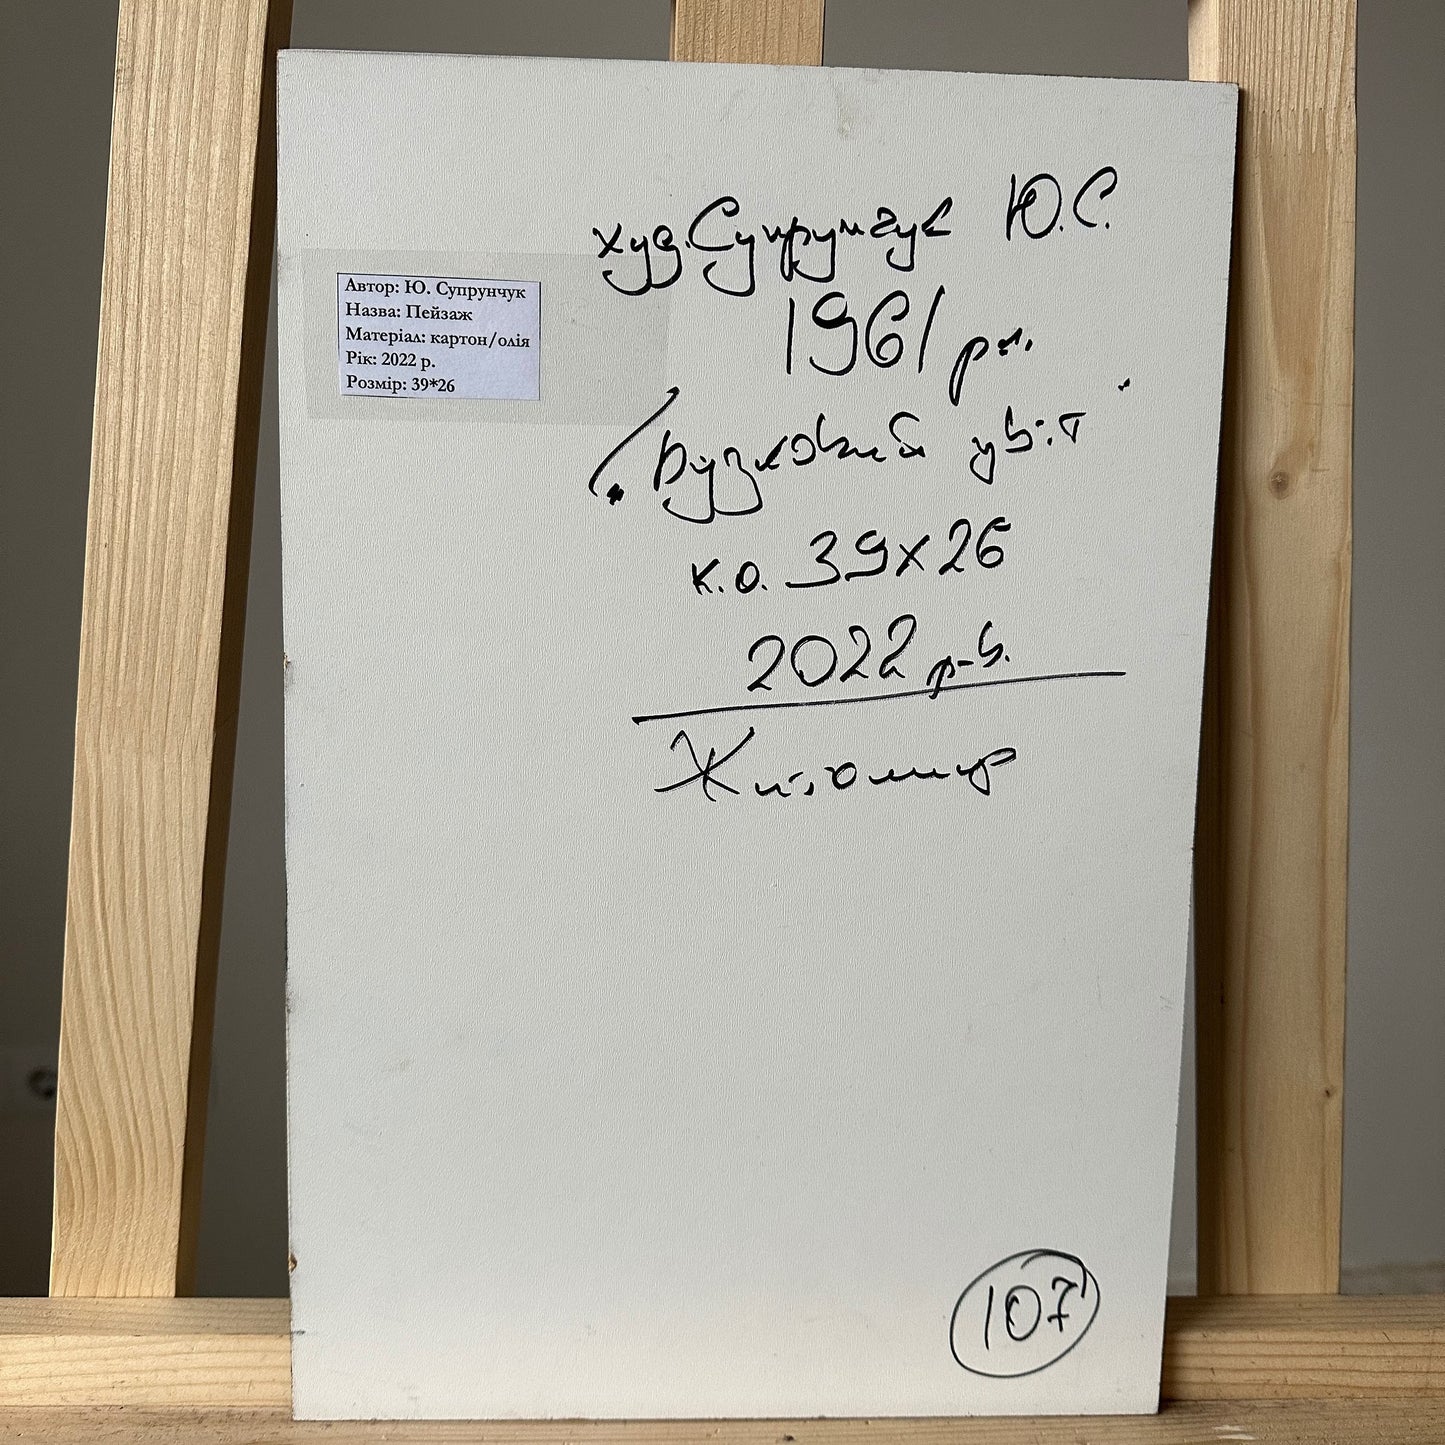 Автор: Ю. Супрунчук
Назва: Пейзаж
Матеріал: картон/олія
Рік: 2022 р.
Розмір: 39*26
худ. Супрунчук Ю.С.
1961 р.н.
"Бузковий цвіт"
к.о. 39х26
2022 р-в.
Житомир
107